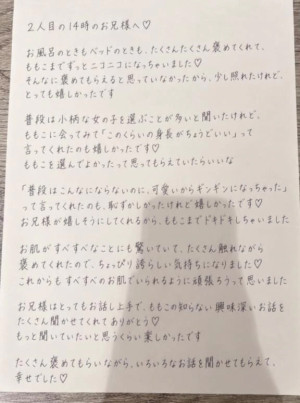 2人目の14時のお兄様へ♡
お風呂のときもベッドのときも、たくさんたくさん褒めてくれて、
ももこまでずっとニコニコになっちゃいました♡
そんなに褒めてもらえると思っていなかったから、少し照れたけれど、
とっても嬉しかったです
普段は小柄な女の子を選ぶことが多いと聞いたけれど、
ももこに会ってみて「このくらいの身長がちょうどいい」って
言ってくれたのも嬉しかったです♡
ももこを選んでよかったって思ってもらえていたらいいな
「普段はこんなにならないのに、可愛いからギンギンになっちゃった」
って言ってくれたのも、恥ずかしかったけど嬉しかったです♡
お兄様が嬉しそうにしてくれるから、ももこまでドキドキしちゃいました
お肌がすべすべなことにも驚いていて、たくさん触れながら
褒めてくれたので、ちょっぴり誇らしい気持ちになりました♡
これからもすべすべのお肌でいられるように頑張ろうって思いました
お兄様はとってもお話し上手で、ももこの知らない興味深いお話を
たくさん聞かせてくれてありがとう♡
もっと聞いていたいと思うくらい楽しかったです
たくさん褒めてもらいながら、いろいろなお話を聞かせてもらえて、
幸せでした♡